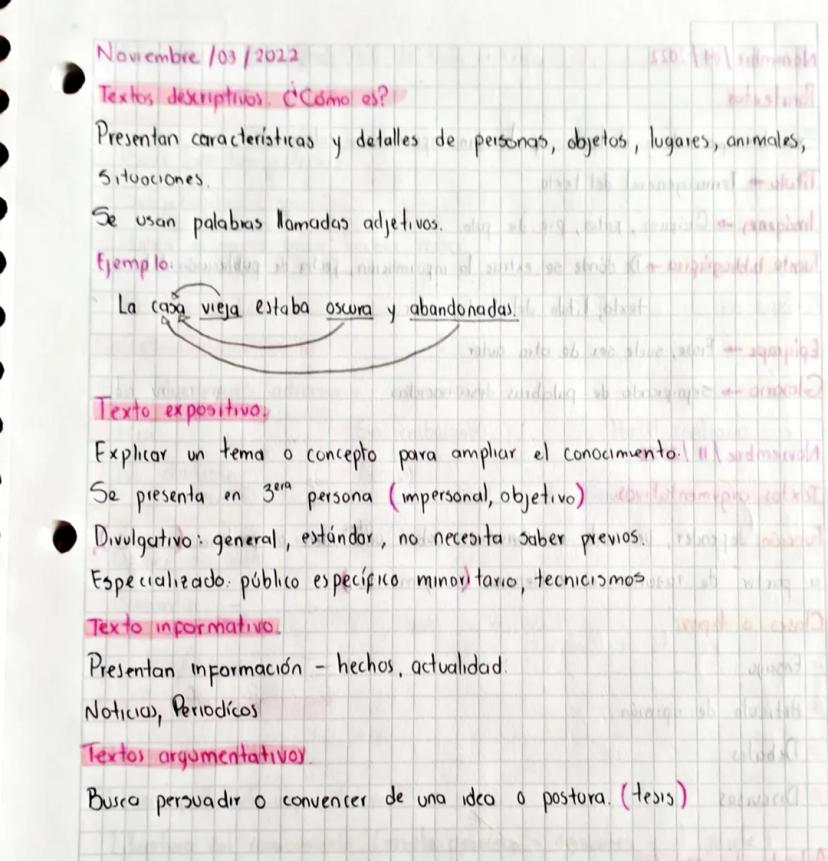 Noviembre /03/2022
Textos descriptivos. ¿Cómo es?
Presentan características y detalles de personas, objetos, lugares, animales,
situaciones.
Se usan palabras llamadas adjetivos.
Ejemplo:
La casa vieja estaba oscura y abandonadas.
Texto expositivo.
Explicar un tema o concepto para ampliar el conocimiento.
Se presenta en 3era persona (impersonal, objetivo)
Divulgativo: general, estándar, no necesita saber previos.
Especializado: público específico minoritario, tecnicismos
Texto informativo.
Presentan información - hechos, actualidad.
Noticias, Periodícos
Textos argumentativos
Busca persuadir o convencer de una idea o postura. (tesis)